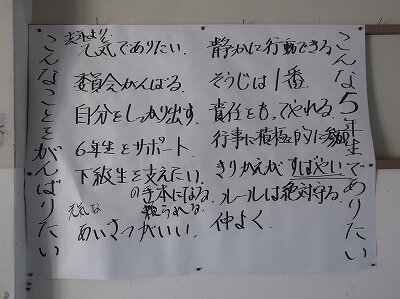 こんな5年生でありたい
静かに行動できる
そうじは1番
責任をもってやれる
行事に積極的に
きりかえがすばやい
ルールは絶対守る
仲よく
去年より
元気でありたい.
委員会がんばる
自分をしっかり出す
6年生をサポート
下級生を支えたい.
の手本になる
頼られる
元気な
あいさつがいい.
こんなことをがんばりたい